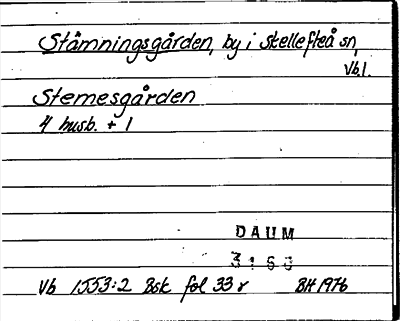 Stämningsgården, by i Skellefteå sn,
Vb.
Stemesgården
4 husb. + 1
DAUM
3160
Vb 1553:2 Bsk fol 33 r BH 1976